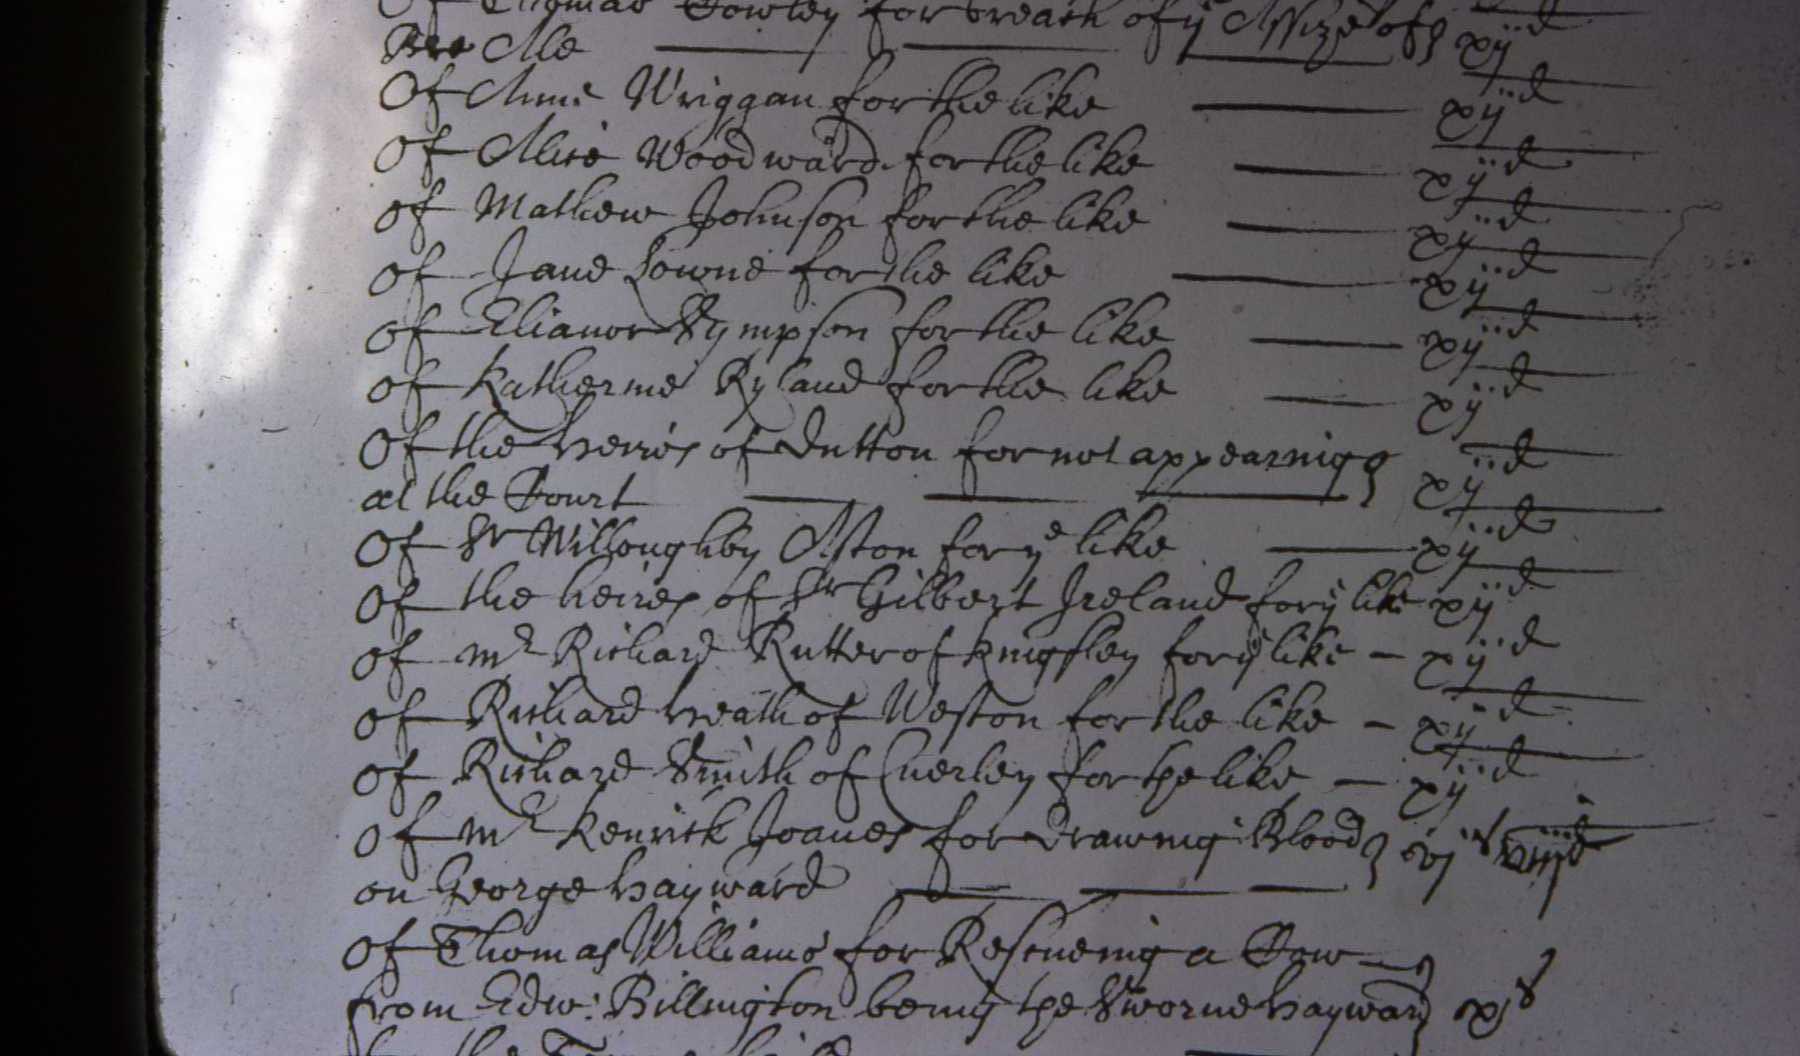 Of Thomas Cowley for breach of yͤ Assize of xijᵈ
Ale
Of Anne Wriggan for the like xijᵈ
Of Allice Woodward for the like xijᵈ
Of Mathew Johnson for the like xijᵈ
Of Jane Lowne for the like xijᵈ
Of Elianor Sympson for the like xijᵈ
Of Katherine Ryland for the like xijᵈ
Of the heires of Dutton for not appearinig xijᵈ
at the Court
Of Sʳ Willoughby Aston for yͤ like xijᵈ
Of the heires of Sʳ Gilbert Ireland for yͤ like xijᵈ
Of Mʳ Richard Rutter of Kingsley for yͤ like – xijᵈ
Of Richard heath of Weston for the like – xijᵈ
Of Richard Smith of Cuerley for the like – xijᵈ
Of Mʳ Kenrick Joanes for drawing Blood vjˢ viijᵈ
on George Hayward
Of Thomas Williams for Rescueing a Cow
from Edw: Billington being the Sworne hayward xˢ